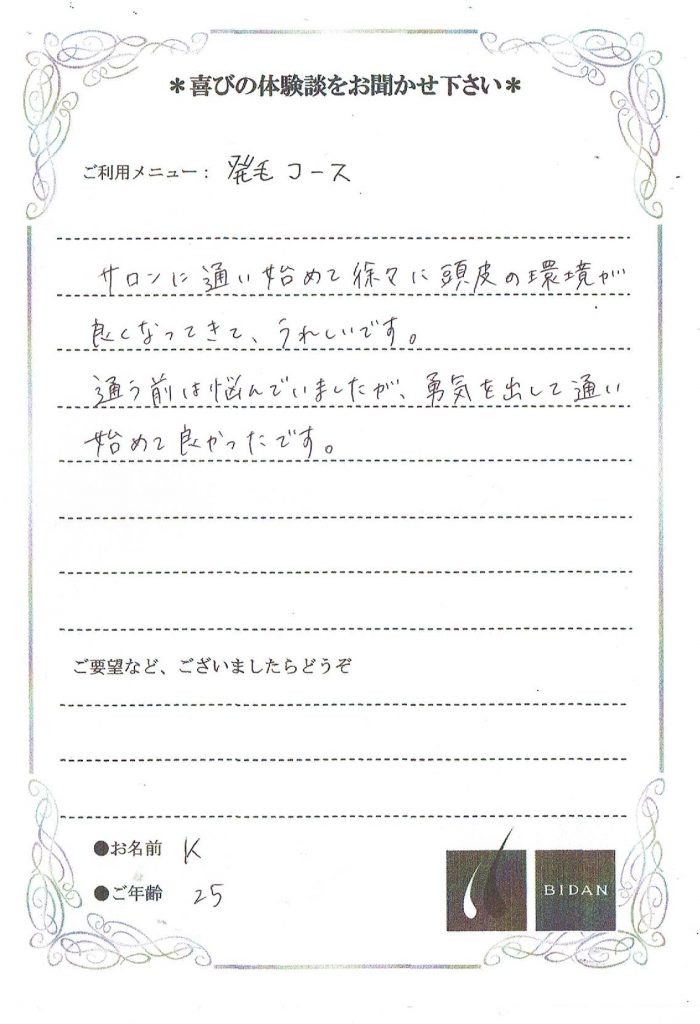 ＊喜びの体験談をお聞かせ下さい＊
ご利用メニュー： 発毛コース
サロンに通い始めて徐々に頭皮の環境が
良くなってきて、うれしいです。
通う前は悩んでいましたが、勇気を出して通い
始めて良かったです。
ご要望など、ございましたらどうぞ
●お名前 K
●ご年齢 25
BIDAN